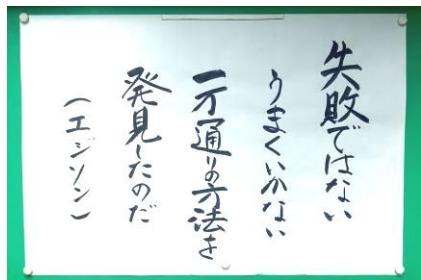 失敗ではない
うまくいかない
一万通りの方法を
発見したのだ
（エジソン）